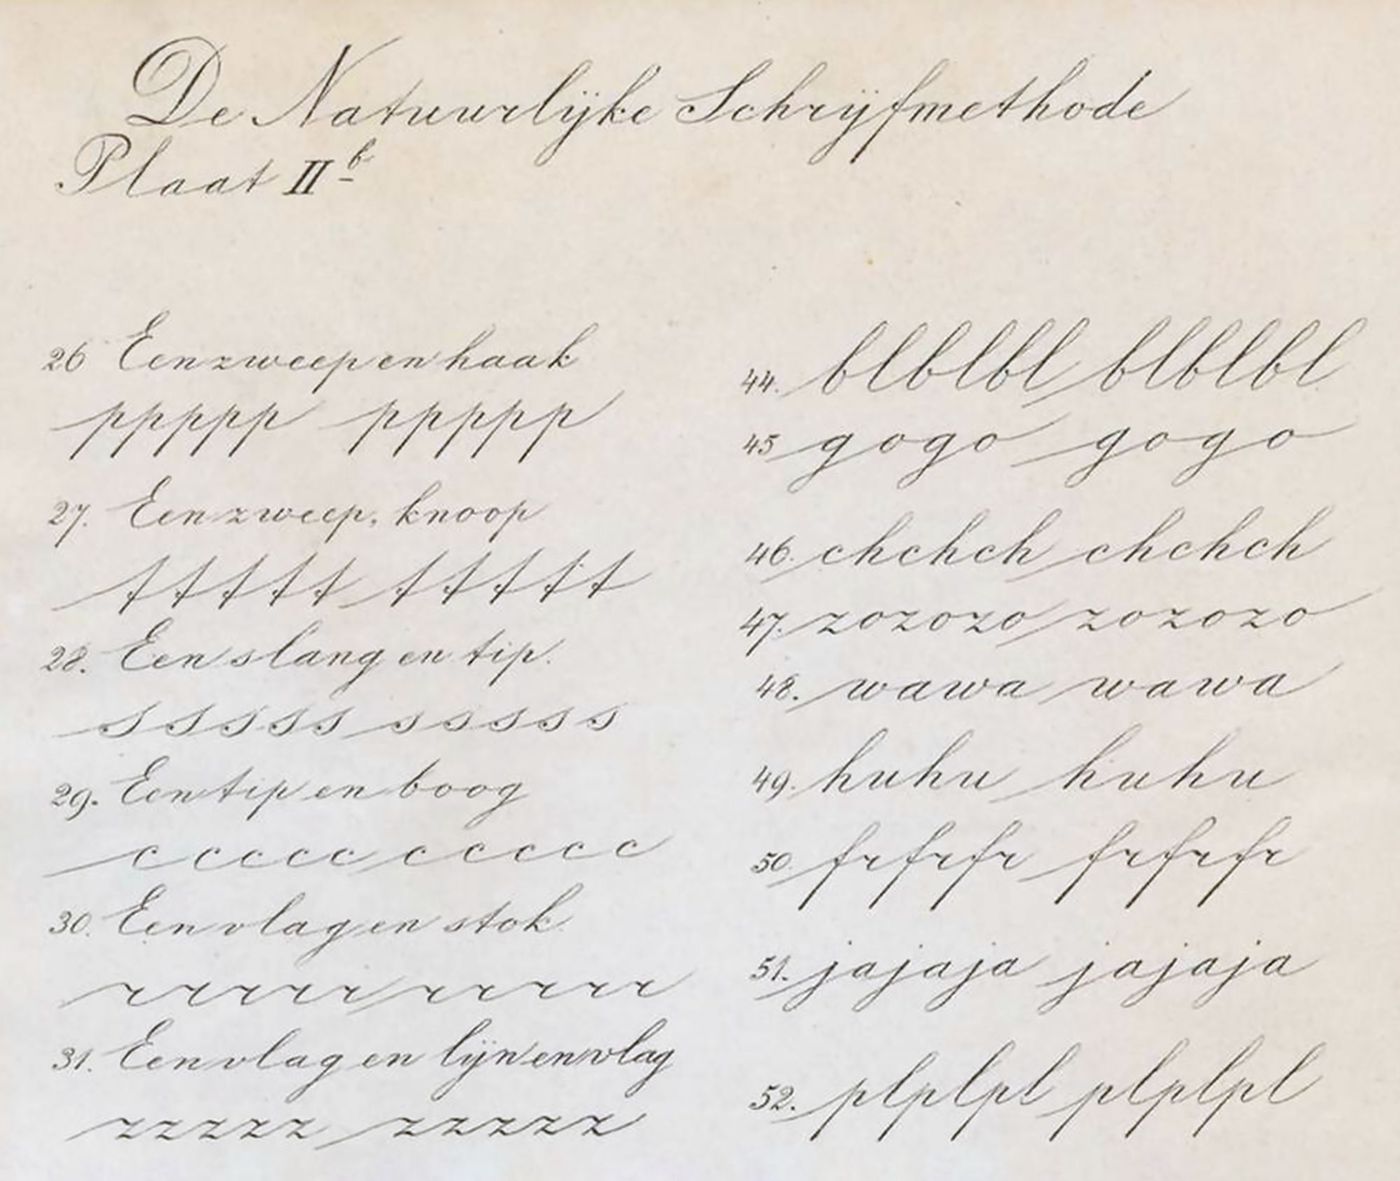 De Natuurlijke Schrijfmethode
Plaat II b
26 Een zweep en haak
ppppp ppppp
27. Een zweep, knoop
ttttt ttttt
28. Een slang en tip.
sssss sssss
29. Een tip en boog
ccccc ccccc
30. Een vlag en stok
rrrrr rrrrr
31. Een vlag en lijn en vlag
zzzzz zzzzz
44. blblbl blblbl
45 gogo gogo
46. chchch chchch
47. zozozo zozozo
48. wawa wawa
49. huhu huhu
50. frfrfr frfrfr
51. jajaja jajaja
52. plplpl plplpl